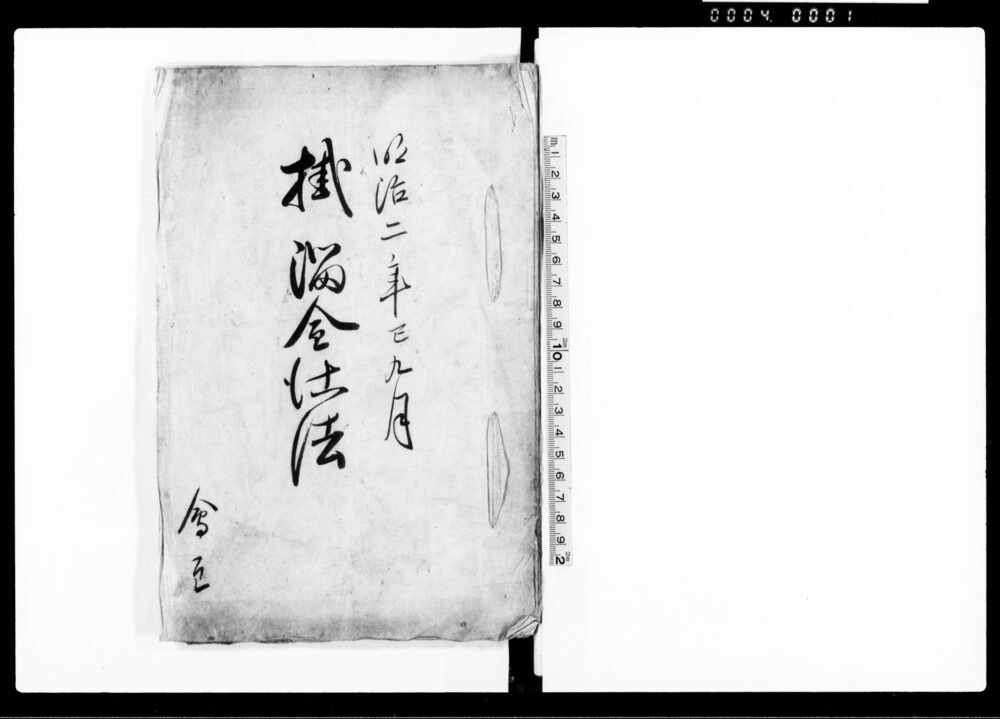 0004 0001
明治二年巳九月
掛溜金仕法
m 1 2 3 4 5 6 7 8 9 10 1 2 3 4 5 6 7 8 9 2